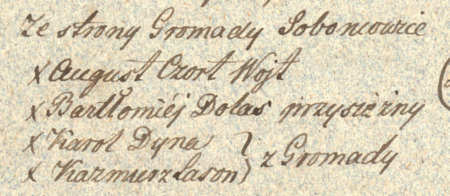 Ze strony Gromady Soboniowice
X August Czort Wojt
X Bartłomiéj Dolas przysiężny
X Karol Dyna
X Kazmierz Lason } z Gromady